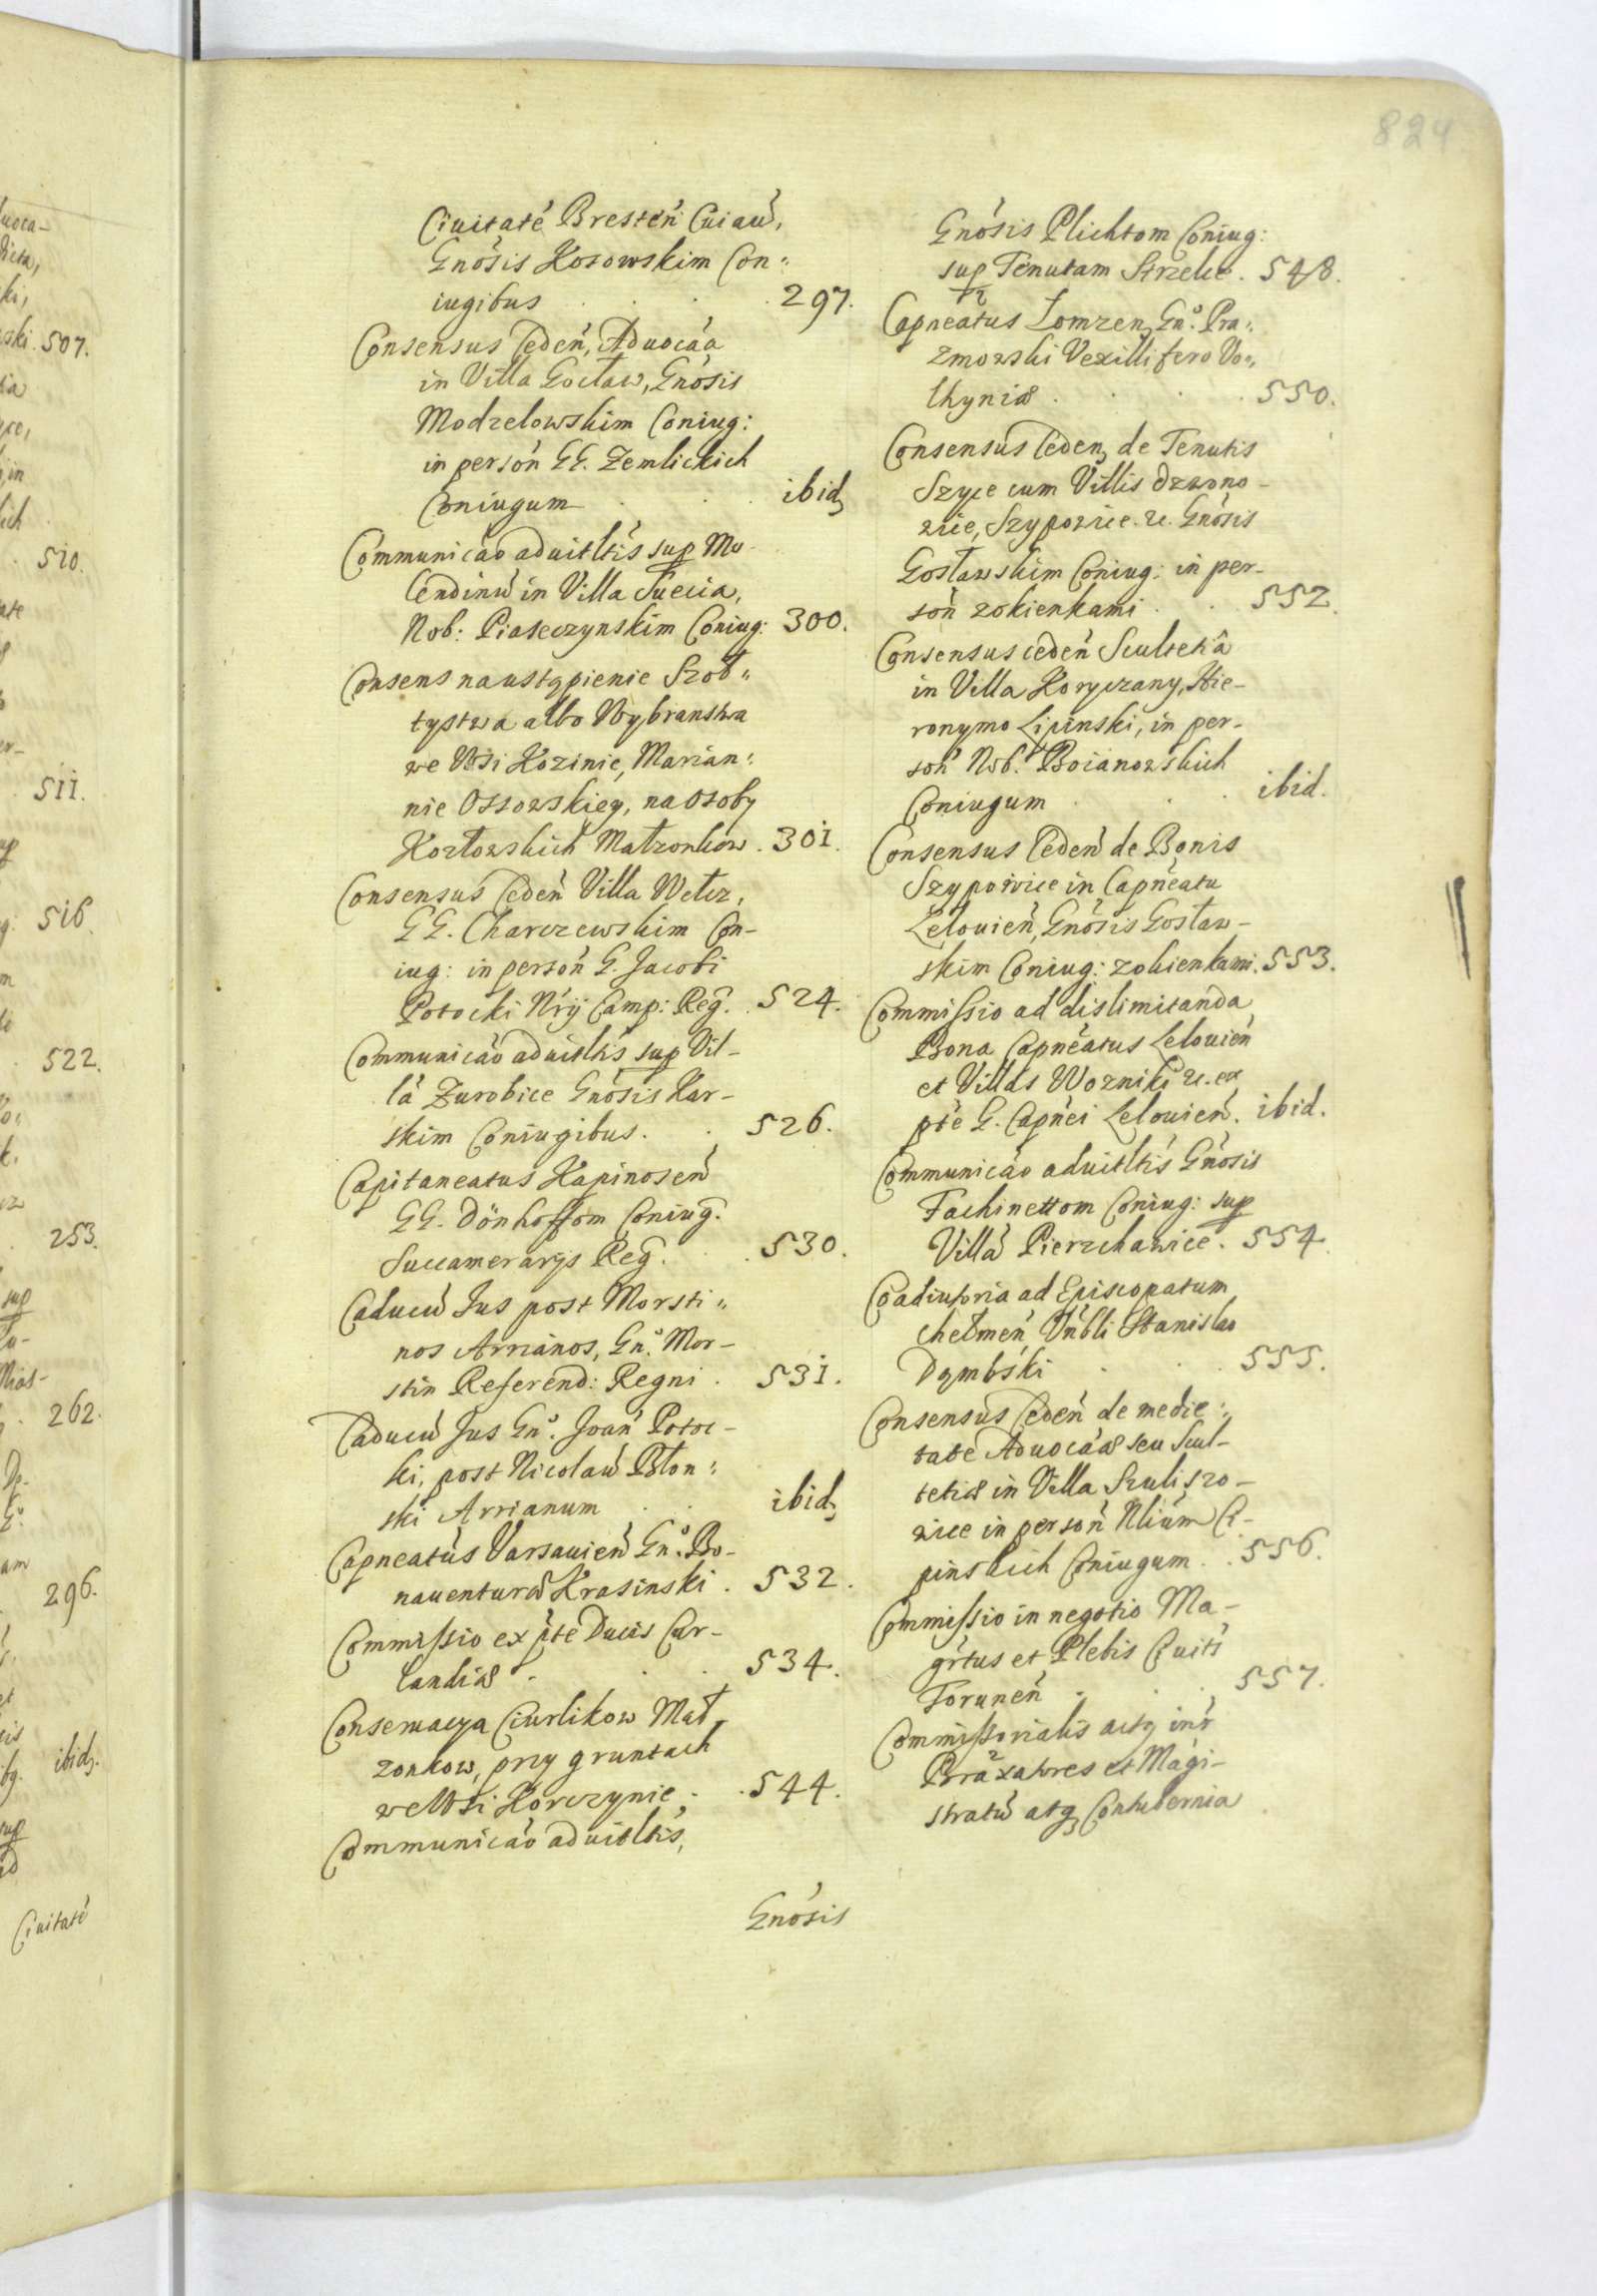 824
Ciuitatē Bresteń Cuiaū,
Gnōsis Kosowskim Con„
iugibus . . . 297.
Consensus Cedeń, Aduocāa
in Villa Gocław, Gnōsis
Modzelowskim Coniug:
in persoń GG. Zemlickich
Coniugum . . ibidȝ
Communicāo aduitltis sup Mo-
lendinū in Villa Suecia,
Nob: Piaseczynskim Coniug: 300.
Consens na ustąpienie Szoł„
tystwa albo Wybranstwa
we Wsi Kozinie, Marian„
nie Ossowskiey, na Osoby
Kozłowskich Małzonkow . 301.
Consensus Cedeń Villa Wełcz,
GG. Charczewskim Con-
iug: in persoń G. Jacobi
Potocki Nrij Camp: Reg. . 524.
Communicāo aduitltis sup Vil-
lā Zurobice Gnōsis Kar-
skim Coniugibus. . 526.
Capitaneatus Kapinoseń
GG. Dönhoffom Coniug.
Succamerarys Reg. . 530.
Caducū Jus post Morsti„
nos Arrianos, Gn.° Mor-
stin Referend: Regni . 531.
Caducū Jus Gn.° Joań Potoc-
ki, post Nicolaū Błon„
ski Arrianum . . ibidȝ
Capneatus Varsauień Gn.° Bo-
nauenturæ Krasinski . 532.
Commissio ex pte Ducis Cur-
landiæ . . . 534.
Conseruacya Ciurlikow Mał-
zonkow, przy gruntach
we Wsi Korczynie . . 544.
Communicāo aduitltis,
Gnōsis
Gnōsis Plichtom Coniug:
sup Tenutam Strzelce . 548.
Capneatus Lomzenȝ Gn.° Pra„
zmowski Vexillifero Vo„
lhyniæ . . . 550.
Consensus Cedenȝ de Tenutis
Szyce cum Villis Dzwono-
wice, Szypowice. &c. Gnōsis
Gosławskim Coniug: in per-
soń zokienkami . . 552.
Consensus cedeń Scultetiâ
in Villa Koryczany, Hie-
ronymo Lipinski, in per-
soń Nob. Boianowskich
Coniugum . . . ibid.
Consensus Cedeń de Bonis
Szypowice in Capneatu
Lelouień, Gnōsis Gosław-
skim Coniug: zokienkami. 553.
Commissio ad dislimitanda
Bona Capneatus Lelouień
et Villas Wozniki &c. ex
pte G. Capnei Lelouień. ibid.
Communicāo aduitltis Gnōsis
Fachinettom Coniug: sup
Villā Pierzchawice . 554.
Coadiutoria ad Episcopatum
Chełmeń, Vnbli Stanislao
Dąmbski . . . 555.
Consensus Cedeń de medie„
tate Aduocāæ seu Scul-
tetiæ in Villa Szuliszo-
wice in persoń Nlium
pinskich Coniugum . . 556.
Commissio in negotio Ma-
grtus et Plebis Cuitis
Toruneń . . . 557.
Commissorialis actȝ intr
Praxatores et Magi-
stratū atqȝ Contubernia
uoca-
ki,
ski. 507.
in
510.
511.
516.
522.
253.
sup
262.
am
296.
ibidȝ.
sup
Ciuitatē